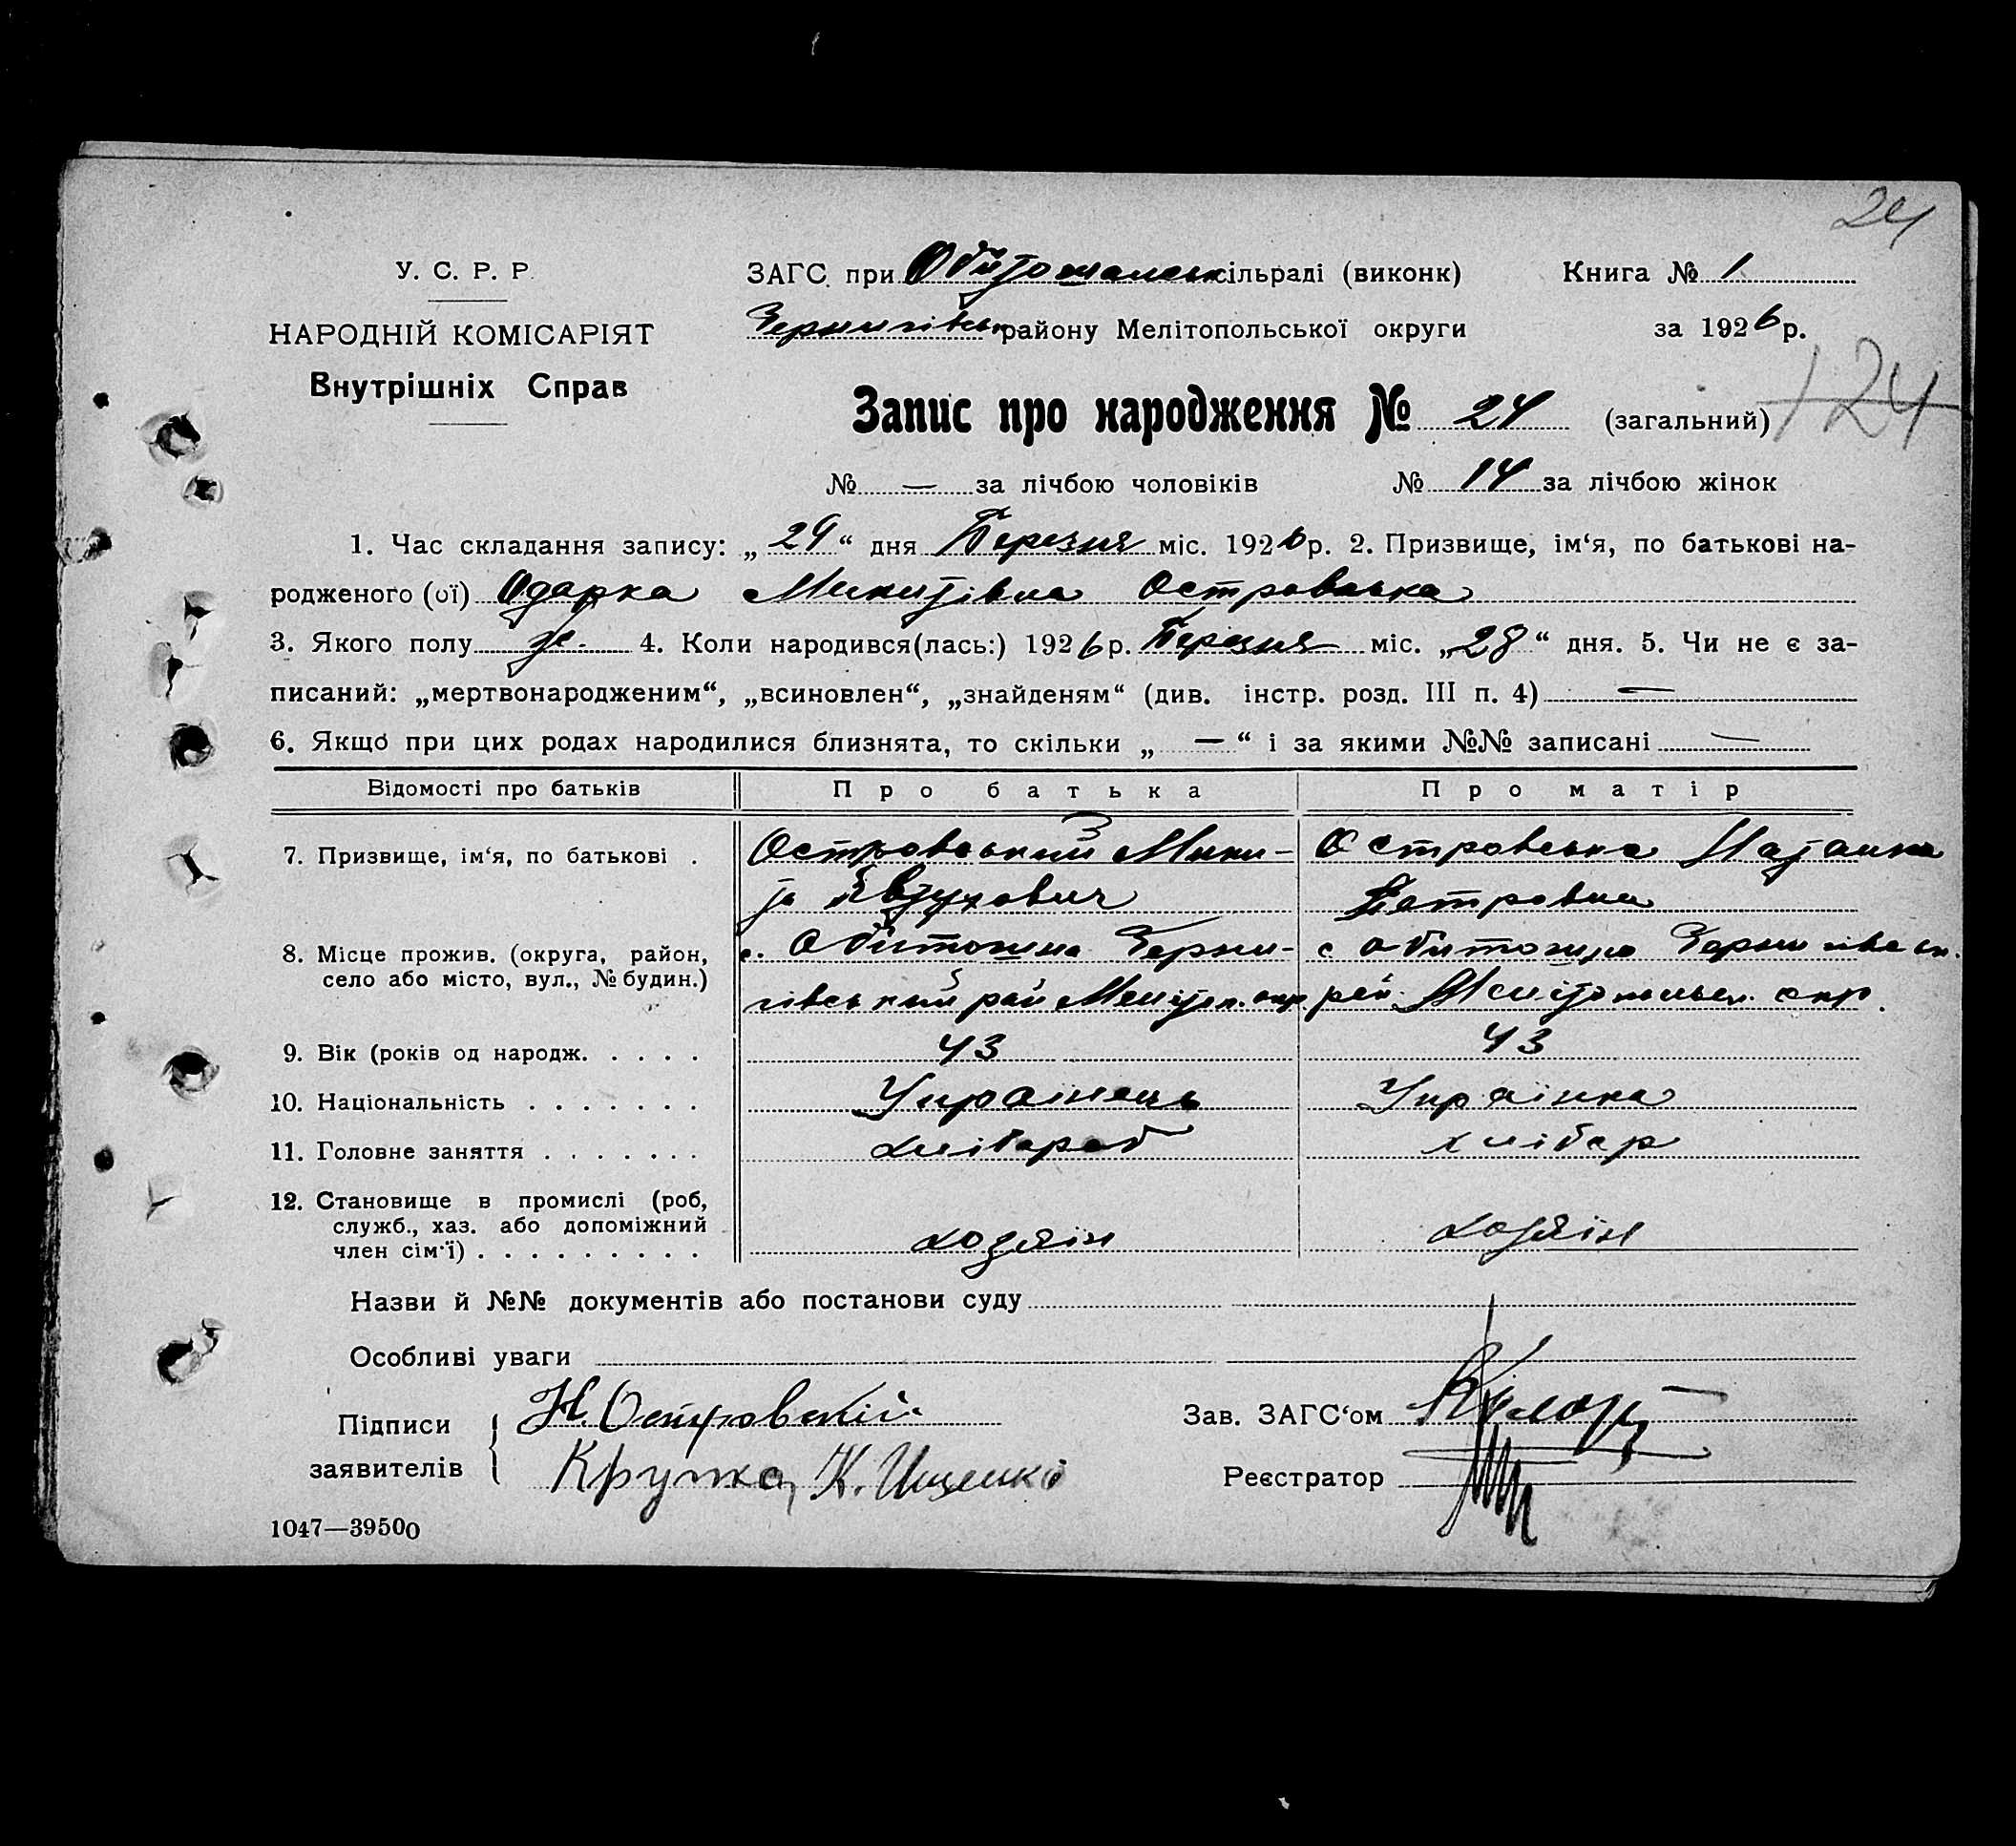 24
У. С. Р. Р. ЗАГС при Обитошанськ. сільраді (виконк) Книга № 1
НАРОДНІЙ КОМІСАРІЯТ Чернигівськ. району Мелітопольської округи за 1926 р.
Внутрішніх Справ
Запис про народження № 24 (загальний) 124
№ — за лічбою чоловіків № 14 за лічбою жінок
1. Час складання запису: „29“ дня Березня міс. 1926 р. 2. Призвище, ім‘я, по батькові на-
родженого (ої) Одарка Микитівна Островська
3. Якого полу ж. 4. Коли народився(лась:) 1926 р. Березня міс. „28“ дня. 5. Чи не є за-
писаний: „мертвонародженим“, „всиновлен“, „знайденям“ (див. інстр. розд. III п. 4) —
6. Якщо при цих родах народилися близнята, то скільки „ — “ і за якими №№ записані —
Відомості про батьків Про батька Про матір
7. Призвище, ім‘я, по батькові . Островський Мики- Островська Наталка
та Явтухович Петровна
8. Місце прожив. (округа, район, с. Обиточна Черни- с Обиточна Чернигівськ.
село або місто, вул., № будин.) гівський рай Меліт. окр. рай. Мелітопольськ. окр.
9. Вік (років од народж. . . . . 43 43
10. Національність . . . . . . . Українець Українка
11. Головне заняття . . . . . . . хлібороб хлібор
12. Становище в промислі (роб,
служб., хаз. або допоміжний
член сім‘ї) . . . . . . . . . хозяїн хозяїн
Назви й №№ документів або постанови суду
Особливі уваги
Підписи Н. Островскій Зав. ЗАГС‘ом
заявителів К. Ищенко Реєстратор
1047—39500